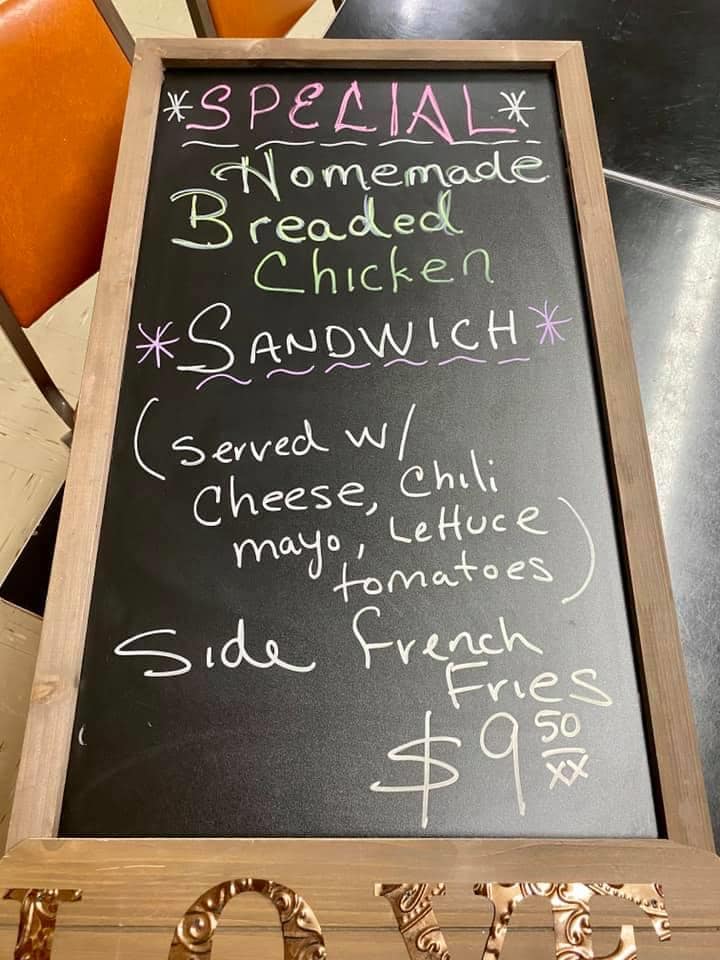 *SPECIAL*
Homemade
Breaded
Chicken
*SANDWICH*
(Served w/
Cheese, Chili
mayo, Lettuce
tomatoes)
Side French
Fries
$9 50/xx
LOVE